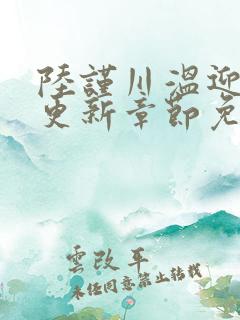 陸謹川溫迎
更新章節免
雲改平
未任同意禁止转载